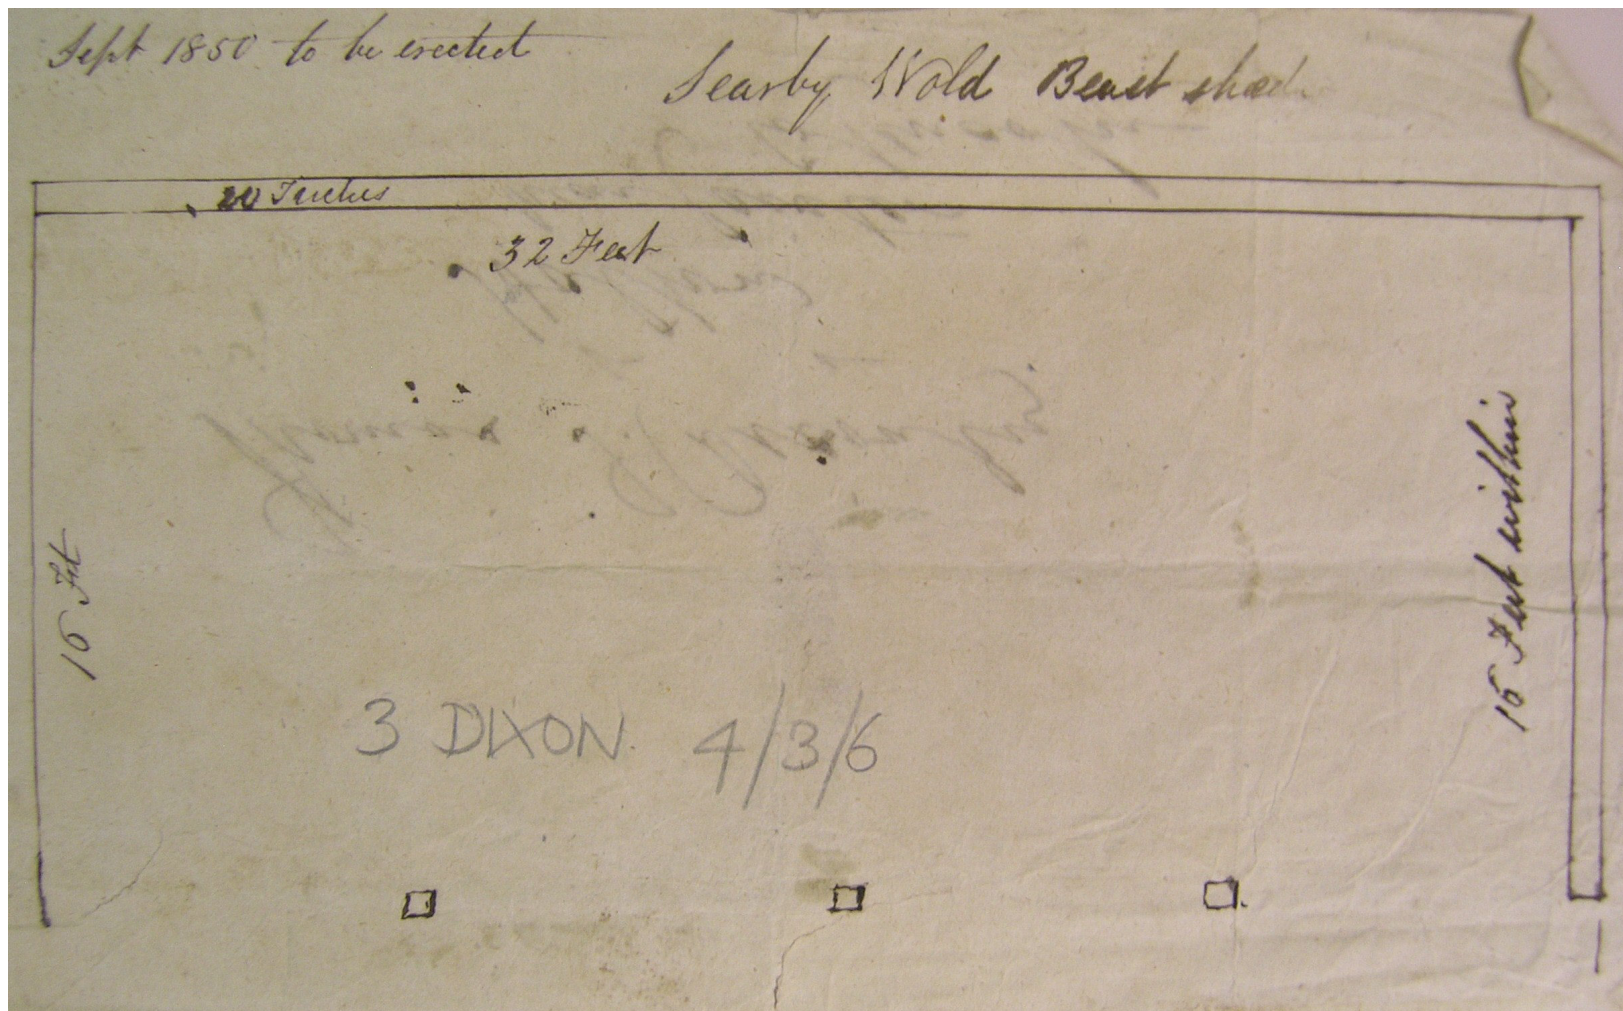 Sept 1850 to be erected
Searby Wold Beast shed
20 Inches
32 Feet
16 Ft
16 Feet within
3 DIXON 4/3/6